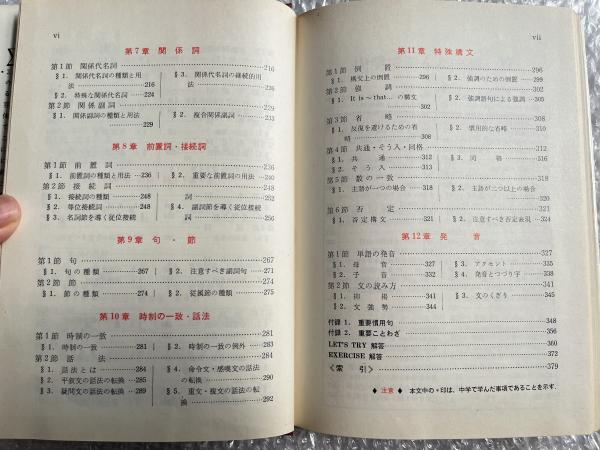 vi
第7章 関係詞
第1節 関係代名詞 216
§1. 関係代名詞の種類と用法 216
§2. 特殊な関係代名詞 224
§3. 関係代名詞の継続的用法 226
第2節 関係副詞 229
§1. 関係副詞の種類と用法 229
§2. 複合関係副詞 233
第8章 前置詞・接続詞
第1節 前置詞 236
§1. 前置詞の種類と用法 236
§2. 重要な前置詞の用法 240
第2節 接続詞 248
§1. 接続詞の種類 248
§2. 等位接続詞 248
§3. 名詞節を導く従位接続詞 252
§4. 副詞節を導く従位接続詞 256
第9章 句・節
第1節 句 267
§1. 句の種類 267
§2. 注意すべき副詞句 271
第2節 節 274
§1. 節の種類 274
§2. 従属節の種類 275
第10章 時制の一致・話法
第1節 時制の一致 281
§1. 時制の一致 281
§2. 時制の一致の例外 282
第2節 話法 284
§1. 話法とは 284
§2. 平叙文の話法の転換 285
§3. 疑問文の話法の転換 289
§4. 命令文・感嘆文の話法の転換 290
§5. 重文・複文の話法の転換 292
vii
第11章 特殊構文
第1節 倒置 296
§1. 構文上の倒置 296
§2. 強調のための倒置 299
第2節 強調 302
§1. It is～that…の構文 302
§2. 強調語句による強調 305
第3節 省略 308
§1. 反復を避けるための省略 308
§2. 慣用的な省略 309
第4節 共通・そう入・同格 312
§1. 共通 312
§2. そう入 313
§3. 同格 314
第5節 数の一致 318
§1. 主語が一つの場合 318
§2. 主語が二つ以上の場合 320
第6節 否定 321
§1. 否定構文 321
§2. 注意すべき否定表現 324
第12章 発音
第1節 単語の発音 327
§1. 母音 327
§2. 子音 331
§3. アクセント 335
§4. 発音とつづり字 338
第2節 文の読み方 341
§1. 抑揚 341
§2. 文強勢 344
§3. 文のくぎり 345
付録1. 重要慣用句 348
付録2. 重要ことわざ 356
LET'S TRY 解答 360
EXERCISE 解答 372
《索引》 379
◆注意◆ 本文中の*印は、中学で学んだ事項であることを示す.